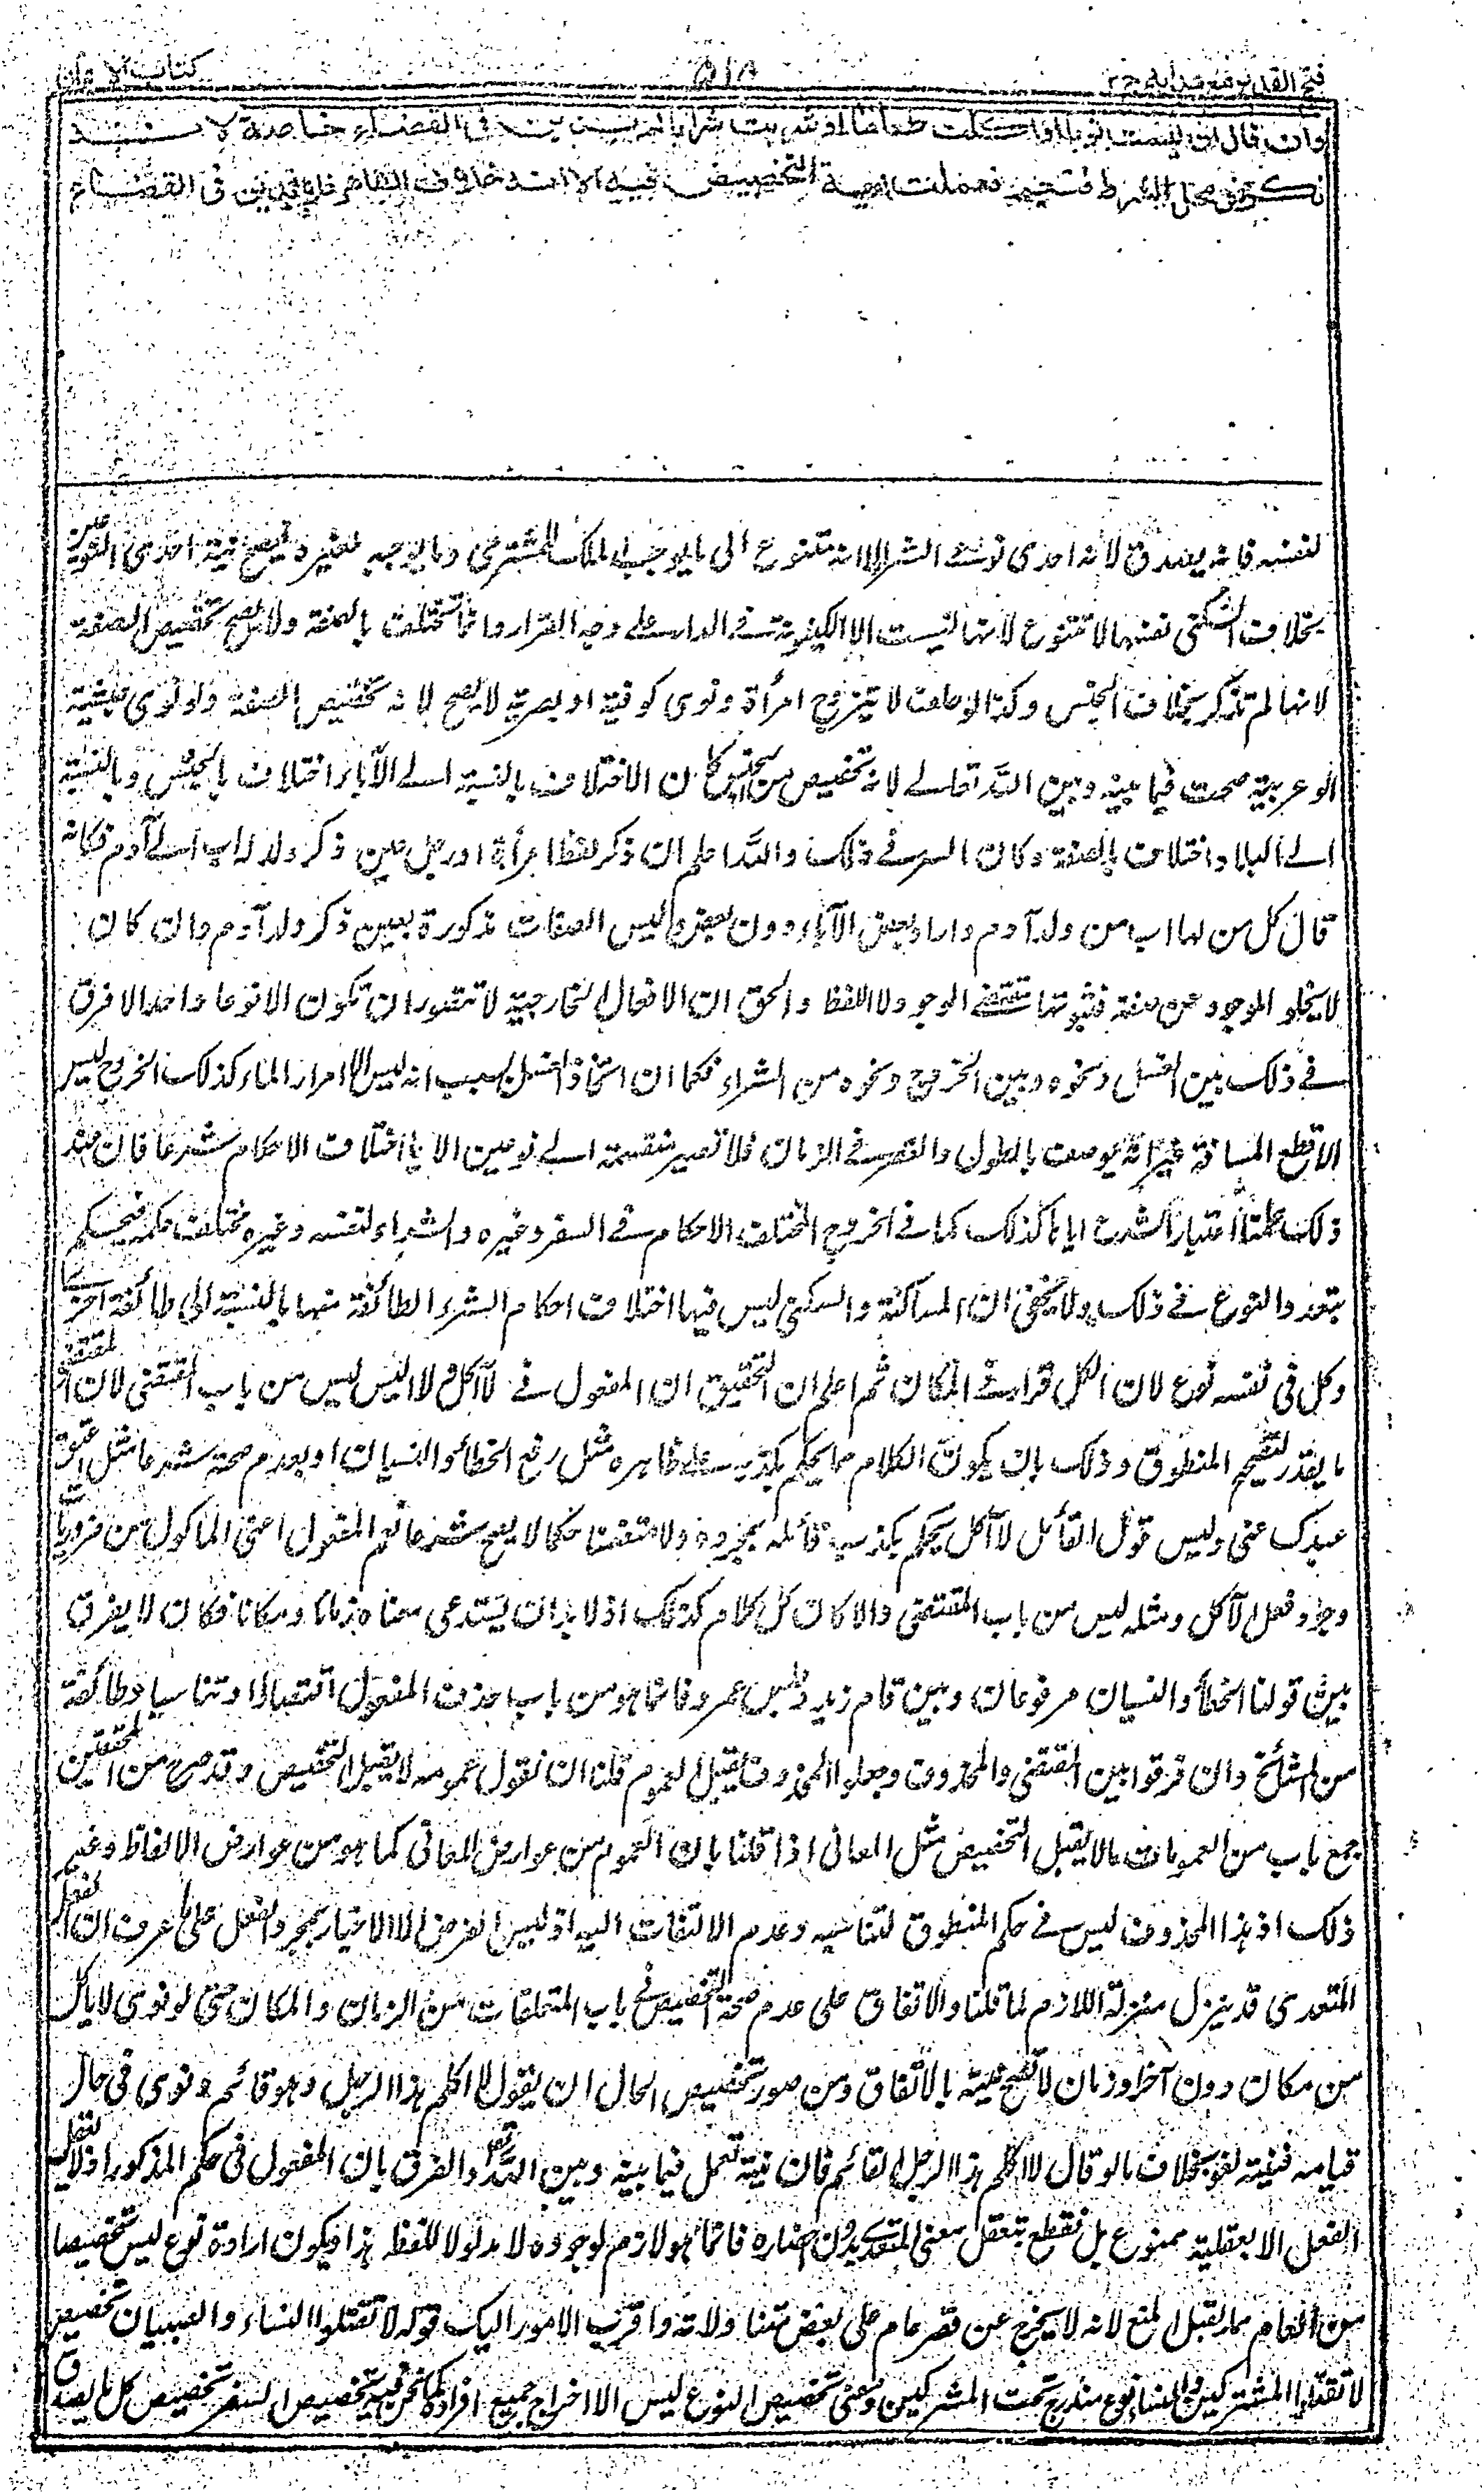 فتح القدير مع هداية ج ٢ ٥١٨ كتاب الايمان
وان قال ان لبست ثوبا او اكلت طعاما او شربت شرابا لم يدين في القضاء خاصة لانه
نكرة في محل الشرط فتعم فعملت نية التخصيص فيه الا انه خلاف الظاهر فلا يدين في القضاء
لنفسه فانه يصدق لانه احدى نوعي الشراء لانه متنوع الى ما يوجب الملك للمشتري وما يوجبه لغيره فيصح نية احدى النوعين
بخلاف السكنى نفسها لا تتنوع لانها ليست الا الكينونة في الدار على وجه القرار وانما تختلف بالصفة ولا يصح تخصيص الصفة
لانها لم تذكر بخلاف الجنس وكذا لو حلف لا يتزوج امرأة ونوى كوفية او بصرية لا يصح لانه تخصيص الصفة ولو نوى حبشية
او عربية صحت فيما بينه وبين الله تعالى لانه تخصيص من الجنس كان الاختلاف بالنسبة الى الآباء اختلاف بالجنس وبالنسبة
الى البلاد اختلاف بالصفة وكان السر في ذلك والله اعلم ان ذكر لفظ امرأة او رجل عين ذكر ولد لاب الى آدم فكانه
قال كل من لها اب من ولد آدم واراد بعض الآباء دون بعض وليس الصفات مذكورة بعين ذكر ولد آدم وان كان
لا يخلو الموجود عن صفة فثبوتها مقتضى الوجود لا اللفظ والحق ان الافعال الخارجية لا تتصور ان تكون الا نوعا واحدا لا فرق
في ذلك بين الغسل ونحوه وبين الخروج ونحوه من الشراء فكما ان اتحاد الغسل بسبب انه ليس الا امرار الماء كذلك الخروج ليس
الا قطع المسافة غير انه يوصف بالطول والقصر في الزمان فلا تصير منقسمة الى نوعين الا باختلاف الاحكام شرعا فان عند
ذلك علمنا اعتبار الشرع اياها كذلك كما في الخروج المختلف الاحكام في السفر وغيره والشراء لنفسه وغيره مختلف حكمه فيحكم
بتعدد النوع في ذلك ولا يخفى ان المساكنة والسكنى ليس فيها اختلاف احكام الشرع لطائفة منها بالنسبة الى طائفة اخرى
وكل في نفسه نوع لان الكل قرار في المكان ثم اعلم ان التحقيق ان المفعول في لا آكل ولا البس ليس من باب المقتضى لان المقتضى
ما يقدر لتصحيح المنطوق وذلك بان يكون الكلام مما يحكم بكذبه على ظاهره مثل رفع الخطأ والنسيان او بعدم صحته شرعا مثل اعتق
عبدك عني وليس قول القائل لا آكل يحكم بكذب قائله بمجرده ولا متضمنا حكما لا يصح شرعا نعم المفعول اعني المأكول من ضروريات
وجود فعل الآكل ومثله ليس من باب المقتضى والا كان كل كلام كذلك اذ لا بد ان يستدعي معناه زمانا ومكانا فكان لا يفرق
بين قولنا الخطأ والنسيان مرفوعان وبين قام زيد وجلس عمرو فانما هو من باب حذف المفعول اقتصارا وتناسيا وطائفة
من المشائخ وان فرقوا بين المقتضى والمحذوف وجعلوا المحذوف يقبل العموم قلنا ان نقول عمومه لا يقبل التخصيص وقد صرح من المحققين
جمع بان من العمومات ما لا يقبل التخصيص مثل المعاني اذا قلنا بان العموم من عوارض المعاني كما هو من عوارض الالفاظ وغير
ذلك اذ هذا المحذوف ليس في حكم المنطوق لتناسيه وعدم الالتفات اليه اذ ليس الغرض الا الاخبار بمجرد الفعل على ما عرف ان الفعل
المتعدي قد ينزل منزلة اللازم لما قلنا والاتفاق على عدم صحة التخصيص في باب المتعلقات من الزمان والمكان حتى لو نوى لا ياكل
من مكان دون آخر او زمان لا تصح نيته بالاتفاق ومن صور تخصيص الحال ان يقول لا اكلم هذا الرجل وهو قائم ونوى في حال
قيامه فنيته لغو بخلاف ما لو قال لا اكلم هذا الرجل القائم فان نيته تعمل فيما بينه وبين الله تعالى والفرق بان المفعول في حكم المذكور اذ لا يعقل
الفعل الا بعقليته ممنوع بل نقطع بتعقل معنى المتعدي بدون اخطاره فانما هو لازم لوجوده لا مدلولا للفظ هذا ويكون ارادة نوع ليس تخصيصا
من العام مما يقبل المنع لانه لا يخرج عن قصر عام على بعض متناولاته واقرب الامور اليك قوله لا تقتلوا النساء والصبيان تخصيص
لا تقتلوا المشركين والنساء نوع مندرج تحت المشركين ومعنى تخصيص النوع ليس الا اخراج جميع افراده كما نحن فيه تخصيص السفر تخصيص كل ما يصدق